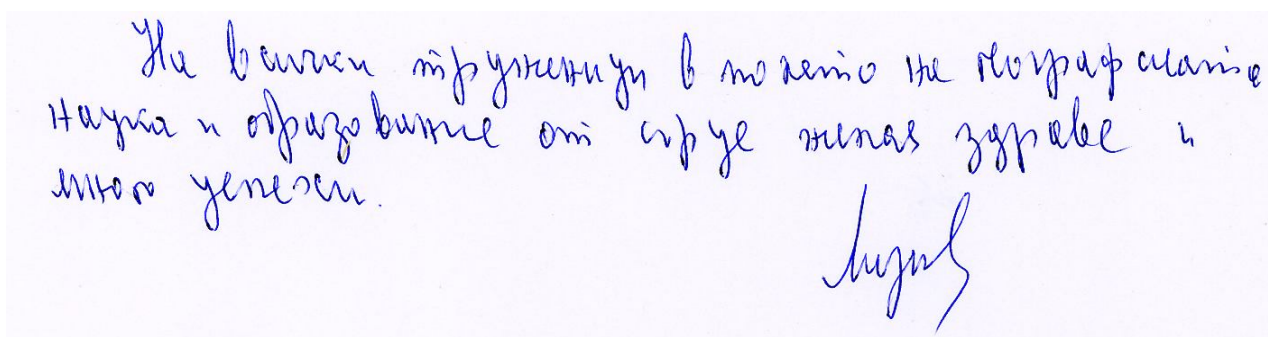 На всички труженици в полето на географската
наука и образование от сърце желая здраве и
много успехи.